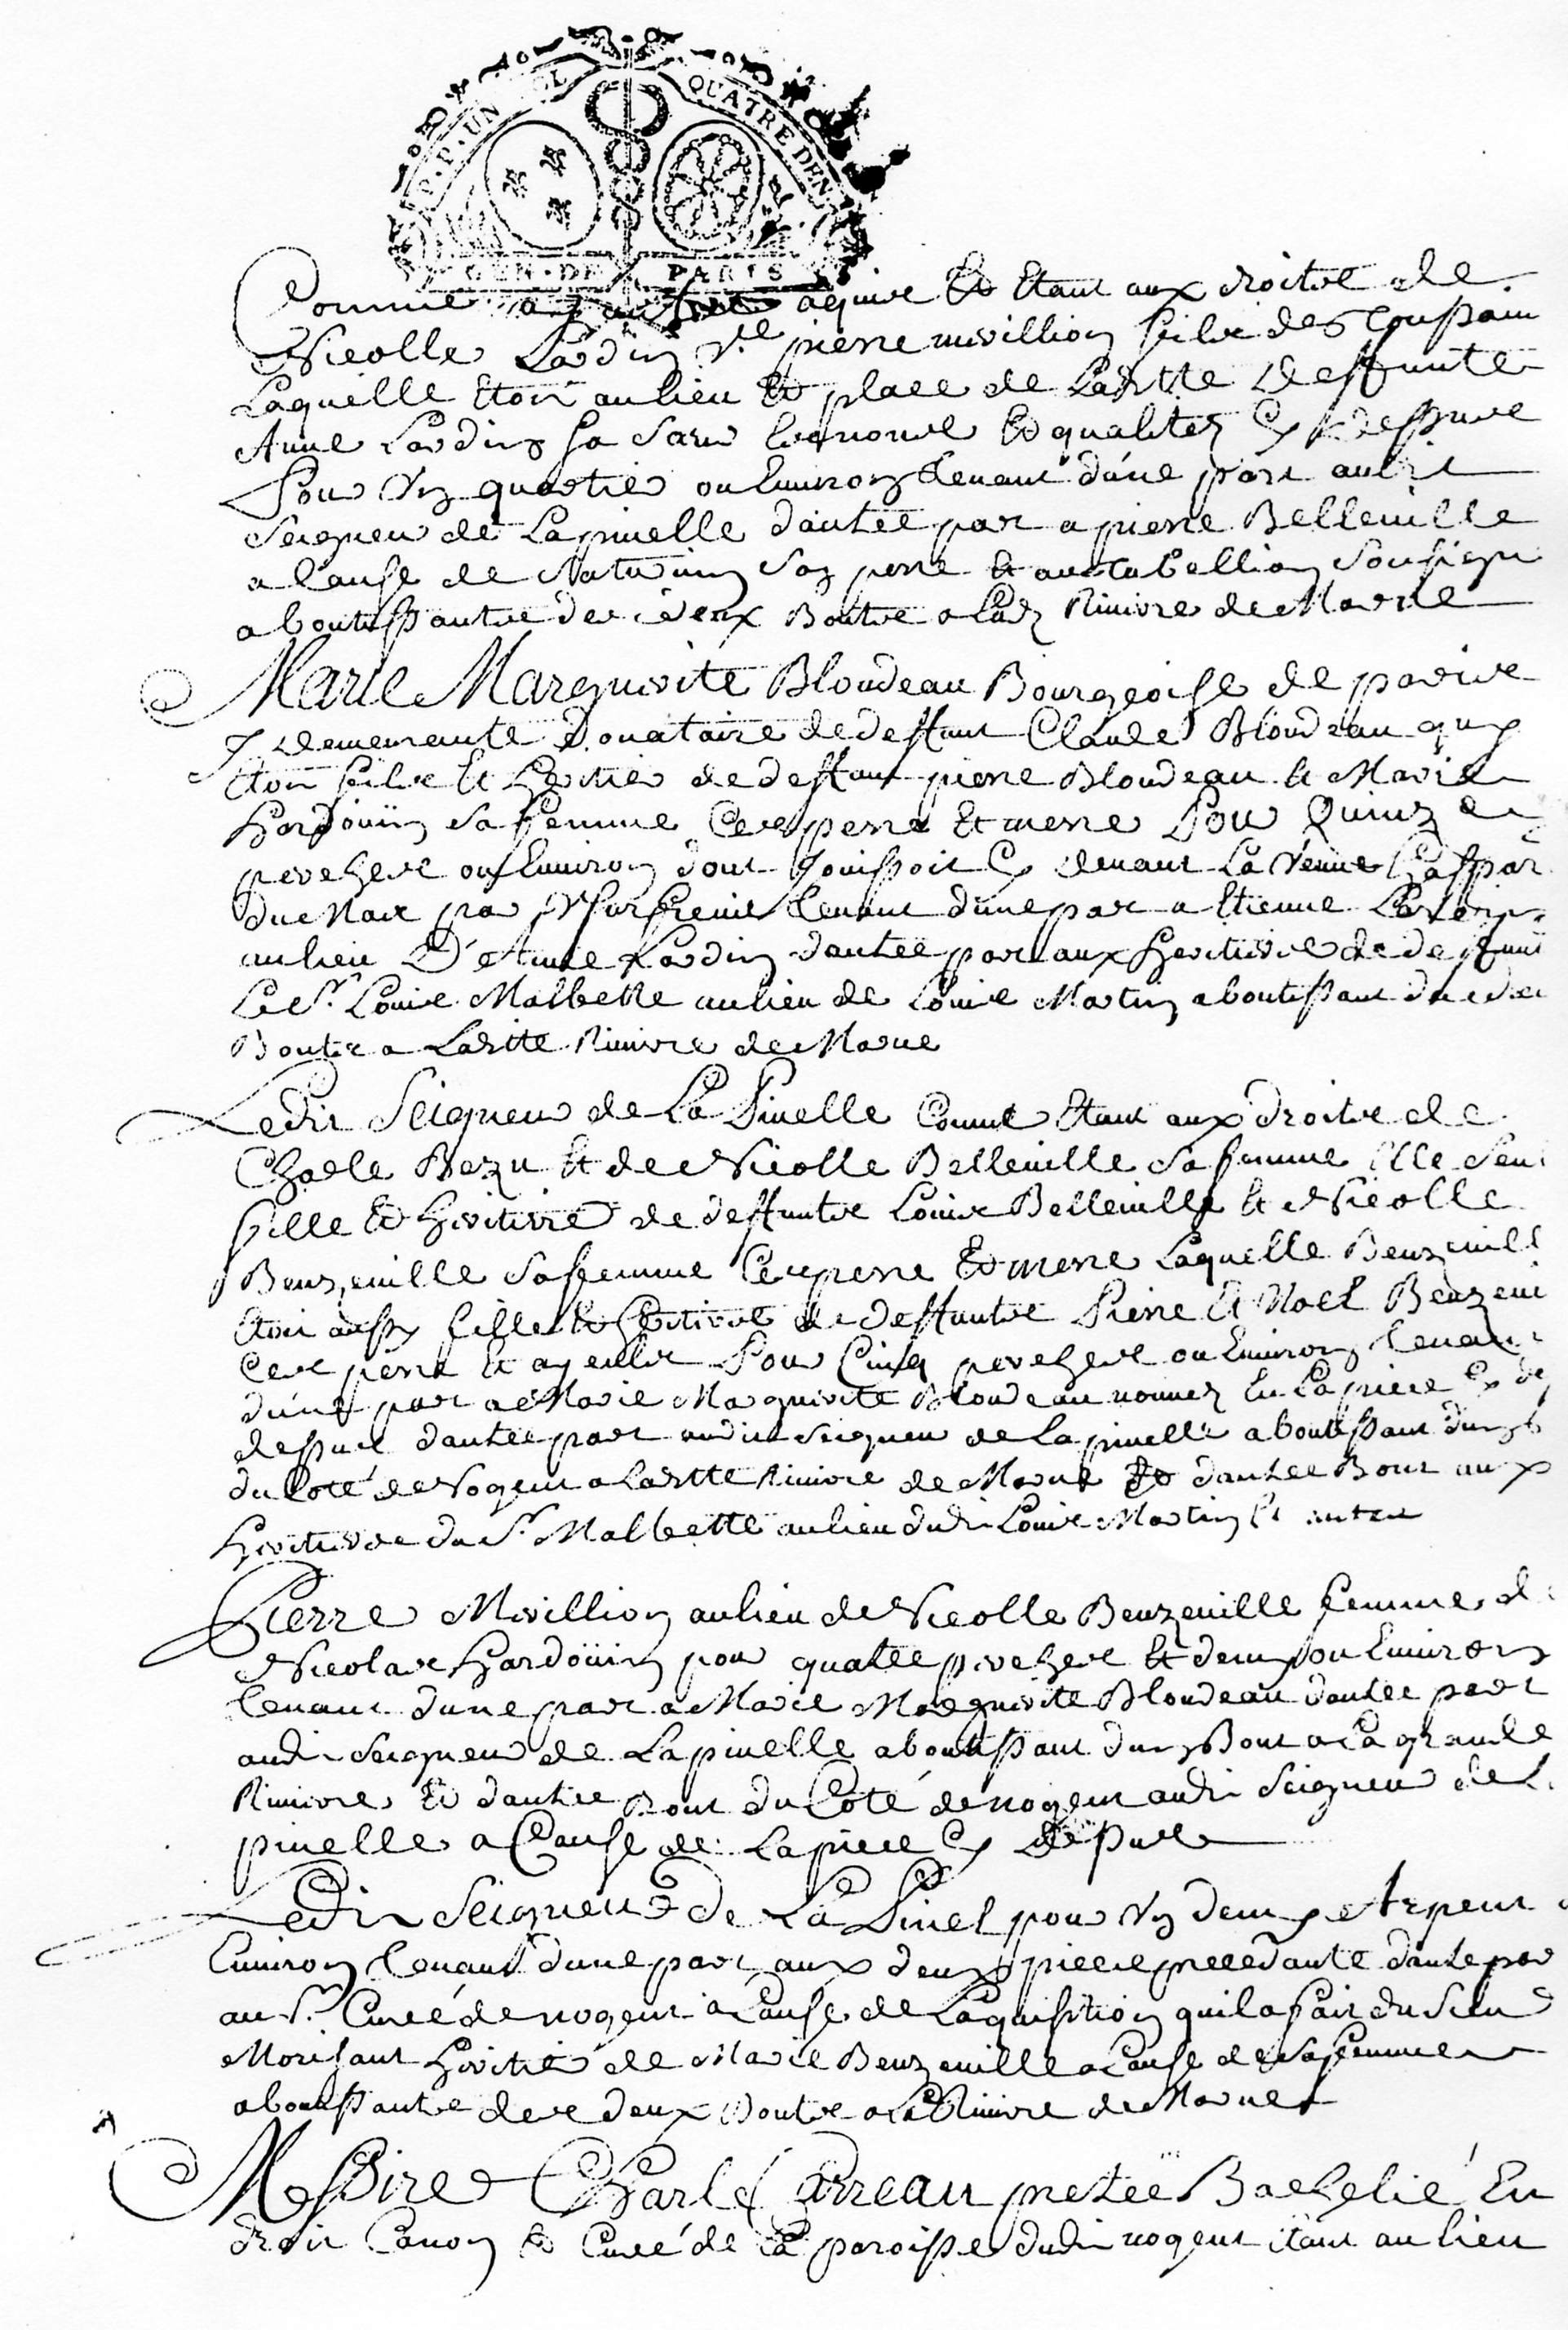 P. P. UN SOL QUATRE DEN.
GEN. DE PARIS
Comme aquis Et Etant aux droits de
Nicolle Lardin Ve pierre mivillion fils des
Laquelle Etoit au lieu Et place de Laditte deffunte
Anne Lardin sa sœur Et qualitez Cy dessus
Pour Un quartier ou Environ tenant d'une part audit
Seigneur de Lapinelle d'autre part a pierre Belleuille
a Cause de Saturnin son perre Et au tabellion Soussigné
aboutissants des deux Bouts a Lad Riuiere de Marne
Marie Marguerite Blondeau Bourgeoise de paris
y demeurante Donataire de deffunt Claude Blondeau quy
Etoit fils Et Heritier de deffunt pierre Blondeau Et Marie
Hardoüin sa femme Ces perre Et merre Pour Quinze
perches ou Environ dont Jouissoit Cy deuant La Veuue Gaspar
du Noix par tenant d'une part a Etienne
au lieu D'Anne Lardin d'autre part aux Heritiers de deffunt
Le Sr. Louis Malbette au lieu de Louis Martin aboutissant des deux
Bouts a Laditte Riuiere de Marne
Ledit Seigneur de La Pinelle Comme Etant aux droits de
Charle Bezu Et de Nicolle Belleuille sa femme Elle Seul
fille Et Heritiere de deffunts Louis Belleuille Et Nicolle
Beuzeuille sa femme Ces perre Et merre Laquelle Beuzeuill
Etoit aussy fille Et Heritiere de deffunts Pierre Et Noel Beuzeui
Ces perre Et ayeuls Pour Cinq perches ou Environ tenant
d'une part a Marie Marguerite Blondeau nommez En La piece Cy
dessus d'autre part audit Seigneur de Lapinelle aboutissant d'un b
du Coté de Nogent a Laditte Riuiere de Marne Et d'autre Bout aux
Heritiers du Sr. Malbette au lieu dudit Louis Martin Et autre
Pierre Mivillion au lieu de Nicolle Beuzeuille femme d
Nicolas Hardoüin pour quatre perches Et demy ou Environ
tenant d'une part a Marie Marguerite Blondeau d'autre part
audit Seigneur de Lapinelle aboutissant d'un Bout a La grande
Riuiere Et d'autre Bout du Coté de nogent audit Seigneur de L
pinelle a Cause de La piece Cy dessus
Ledit Seigneur De La Pinel pour Un demy Arpent
Environ tenant d'une part aux deux pieces precedante d'autre par
au Sr. Curé de nogent a Cause de Laquisition quil a fait du Sieur
Morisant Heritié de Marie Beuzeuille a Cause de sa femme
aboutissants des deux Bouts a La Riuiere de Marne
Messire Charle Carreau pretre Bachelié En
droit Canon Et Curé de La paroisse dudit nogent Etant au lieu